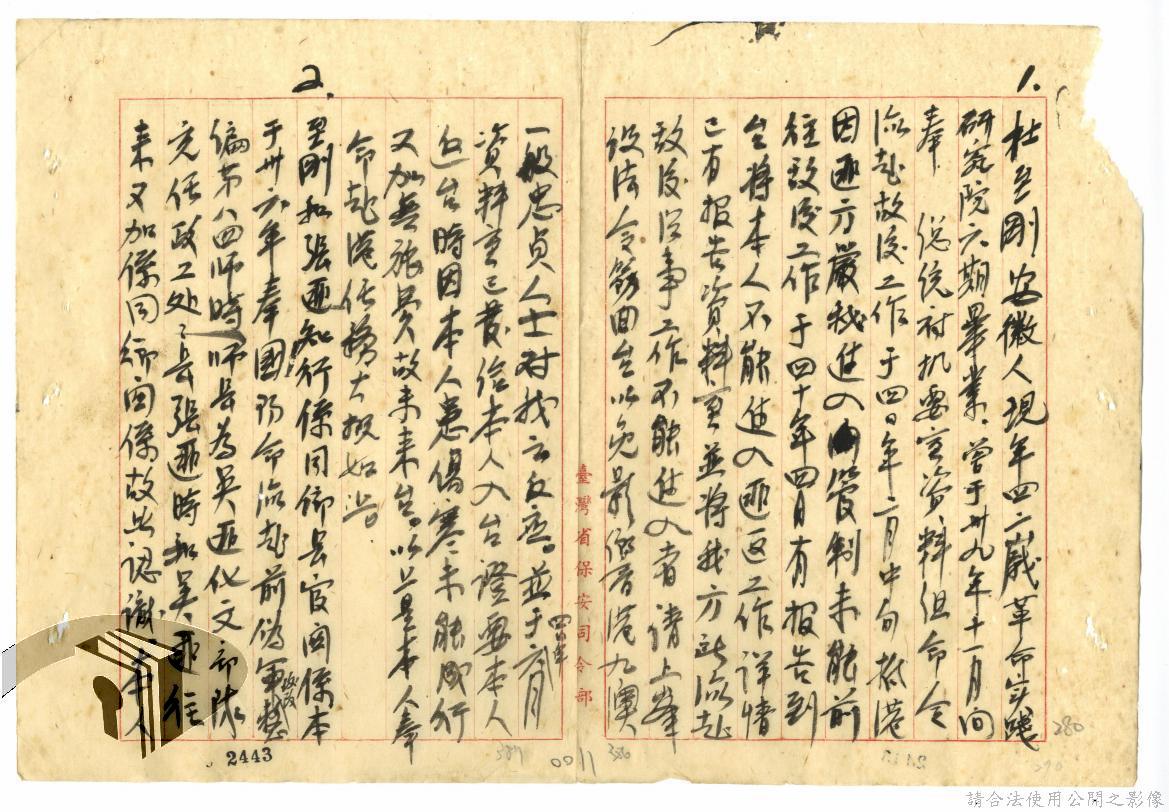 1.
杜至剛安徽人現年四二歲革命实踐
研究院六期畢業曾于卅九年十一月间
奉 总统府机要室資料组命令
派赴敌後工作于四〇年二月中旬抵港
因匪方嚴我進入管制未能前
往敌後工作于四十年四月有报告到
台将本人不能進入匪区工作详情
已有报告資料室並将我方派赴
敌後從事工作不能進入者请上峯
设法令飭回台以免影响香港九龙
2.
一般忠貞人士对我云反应。並于四〇年六月
資料室已發给本人入台證要本人
返台時因本人患傷寒未能成行
又加無旅费故未来台。以上是本人奉
命赴港任務大概如此。
至刚和張匪知行係同鄉長官関係本
于卅六年奉國防命派赴前伪軍整
編第八四師時師長為吴匪化文部隊
充任政工处々長張匪時和吴匪往
来又加係同鄉関係故此認識本人
臺灣省保安司令部
2443
0011
386
387
280
請合法使用公開之影像